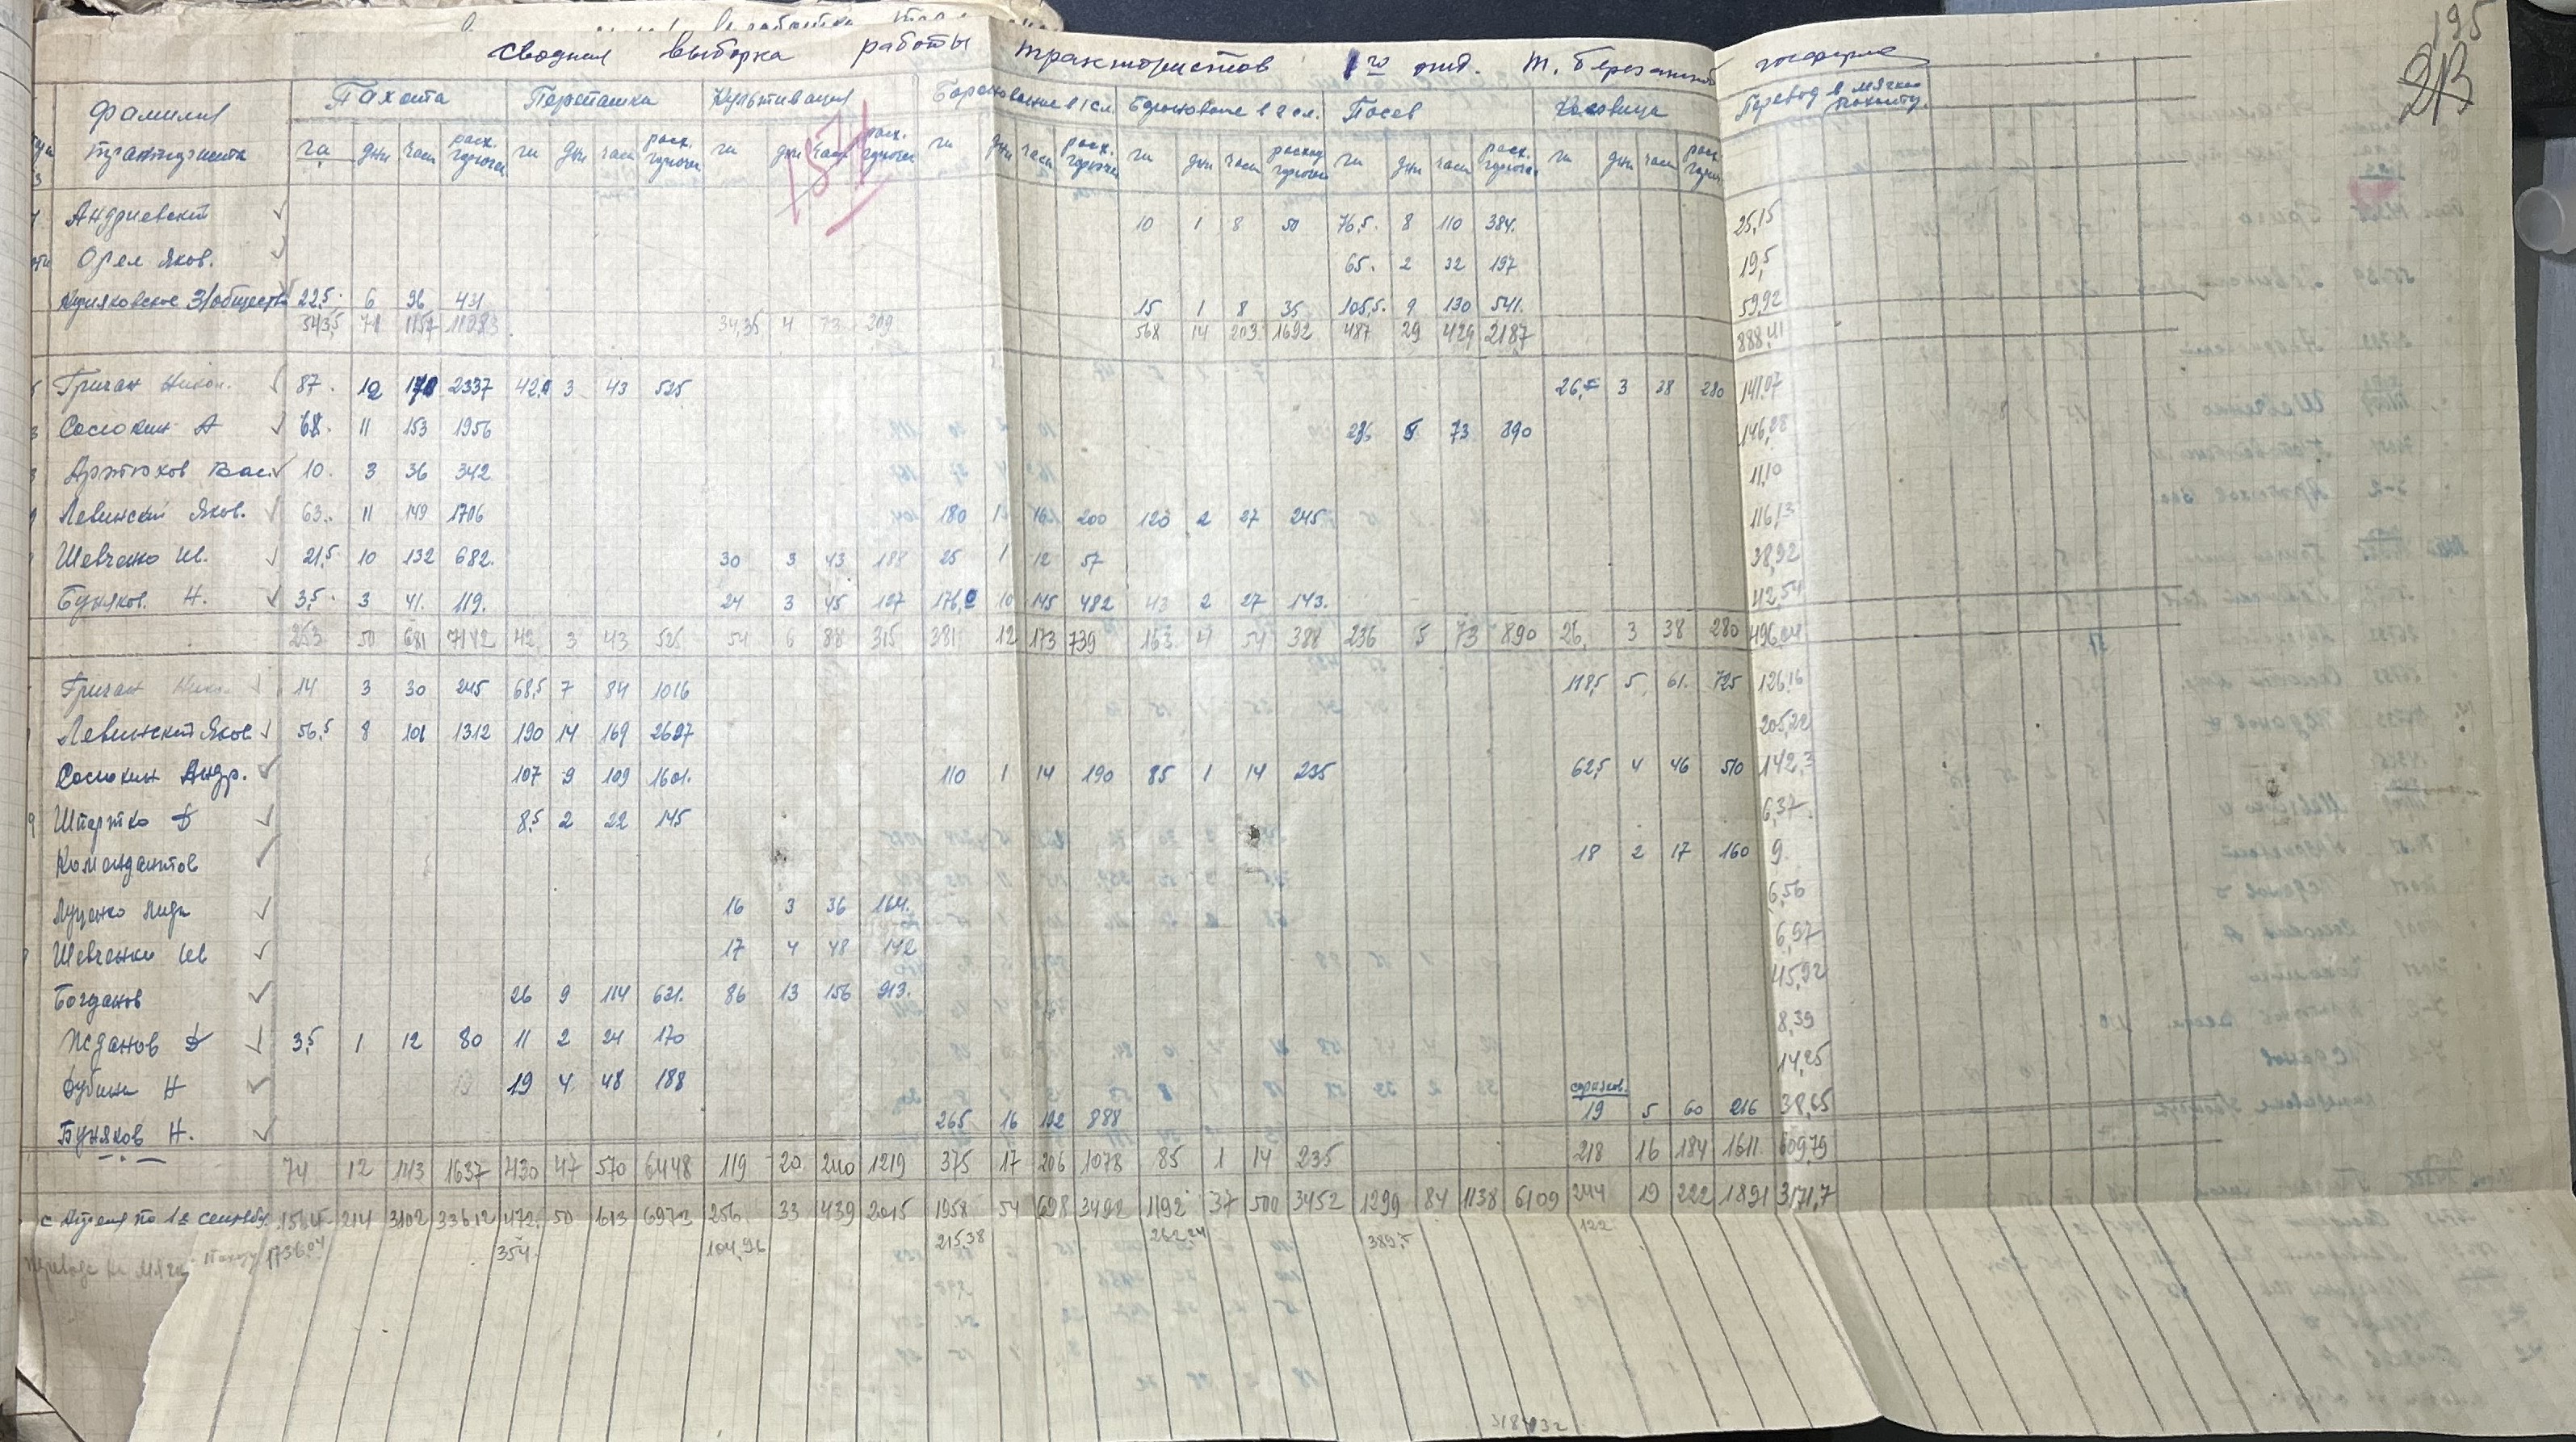 195
213
сводная выборка работы трактористов 1го отд. т. Березанской госферме
фамилия тракториста Пахота Перепашка Культивация Боронование в 1 сл. Боронование в 2 сл. Посев Косовица Перевод в мягкую пахоту.
га дни часы расх. горючего га дни часы расх. горючего га дни часы расх. горючего га дни часы расх. горючего га дни часы расход горючего га дни часы расх. горючего га дни часы расх. горюч.
1571
Андриевский 10 1 8 50 76,5 8 110 384. 25,15
Орел Яков. 65. 2 32 197 19,5
З/общество 22,5 6 96 431 15 1 8 35 105,5. 9 130 541. 59,92
543,5 71 1157 11283 34,35 4 73 209 568 14 203 1692 487 29 429 2187 888,41
Грицан Никол. 87. 12 170 2337 42 3 43 525 26,5 3 38 280 141,07
Сосюкин А 68. 11 153 1956 236 5 73 890 146,88
Артюхов Вас. 10. 3 36 342 11,10
Левинский Яков. 63. 11 149 1706 180 1 16 200 120 2 27 245 116,13
Шевченко Ив. 21,5 10 132 682. 30 3 43 188 25 1 12 57 38,92
Буняков. Н. 3,5 3 41. 119. 24 3 45 127 176 10 145 482 43 2 27 143. 42,54
253 50 681 7142 42 3 43 525 54 6 88 315 381 12 173 739 163 4 54 388 236 5 73 890 26, 3 38 280 496,04
Грицан Ник. 14 3 30 245 68,5 7 84 1016 118,5 5 61. 725 126,16
Левинский Яков 56,5 8 101 1312 190 14 169 2697 205,22
Сосюкин Андр. 107 9 109 1601. 110 1 14 190 85 1 14 235 62,5 4 46 510 142,3
Шпортко Ф 8,5 2 22 145 6,37
Комендантов 18 2 17 160 9.
Луценко Лида 16 3 36 164. 6,56
Шевченко Ив 17 4 48 142 6,97
Богданов 26 9 114 631. 86 13 156 913. 45,92
Жданов Ф 3,5 1 12 80 11 2 24 170 8,39
Дубина Н 19 4 48 188 14,25
Буняков Н. 265 16 192 888 19 5 60 216 38,65
74 12 143 1637 430 47 570 6448 119 20 240 1219 375 17 206 1078 85 1 14 235 218 16 184 1611. 609,79
с Апреля по 1е сентября 1564,5 214 3102 33612 472, 50 613 6973 256 33 439 2015 1958 54 698 3492 1192 37 500 3452 1299 84 1138 6109 244 19 222 1891 3171,7
1736,04 354. 104,96 215,38 262,24 389,5 122